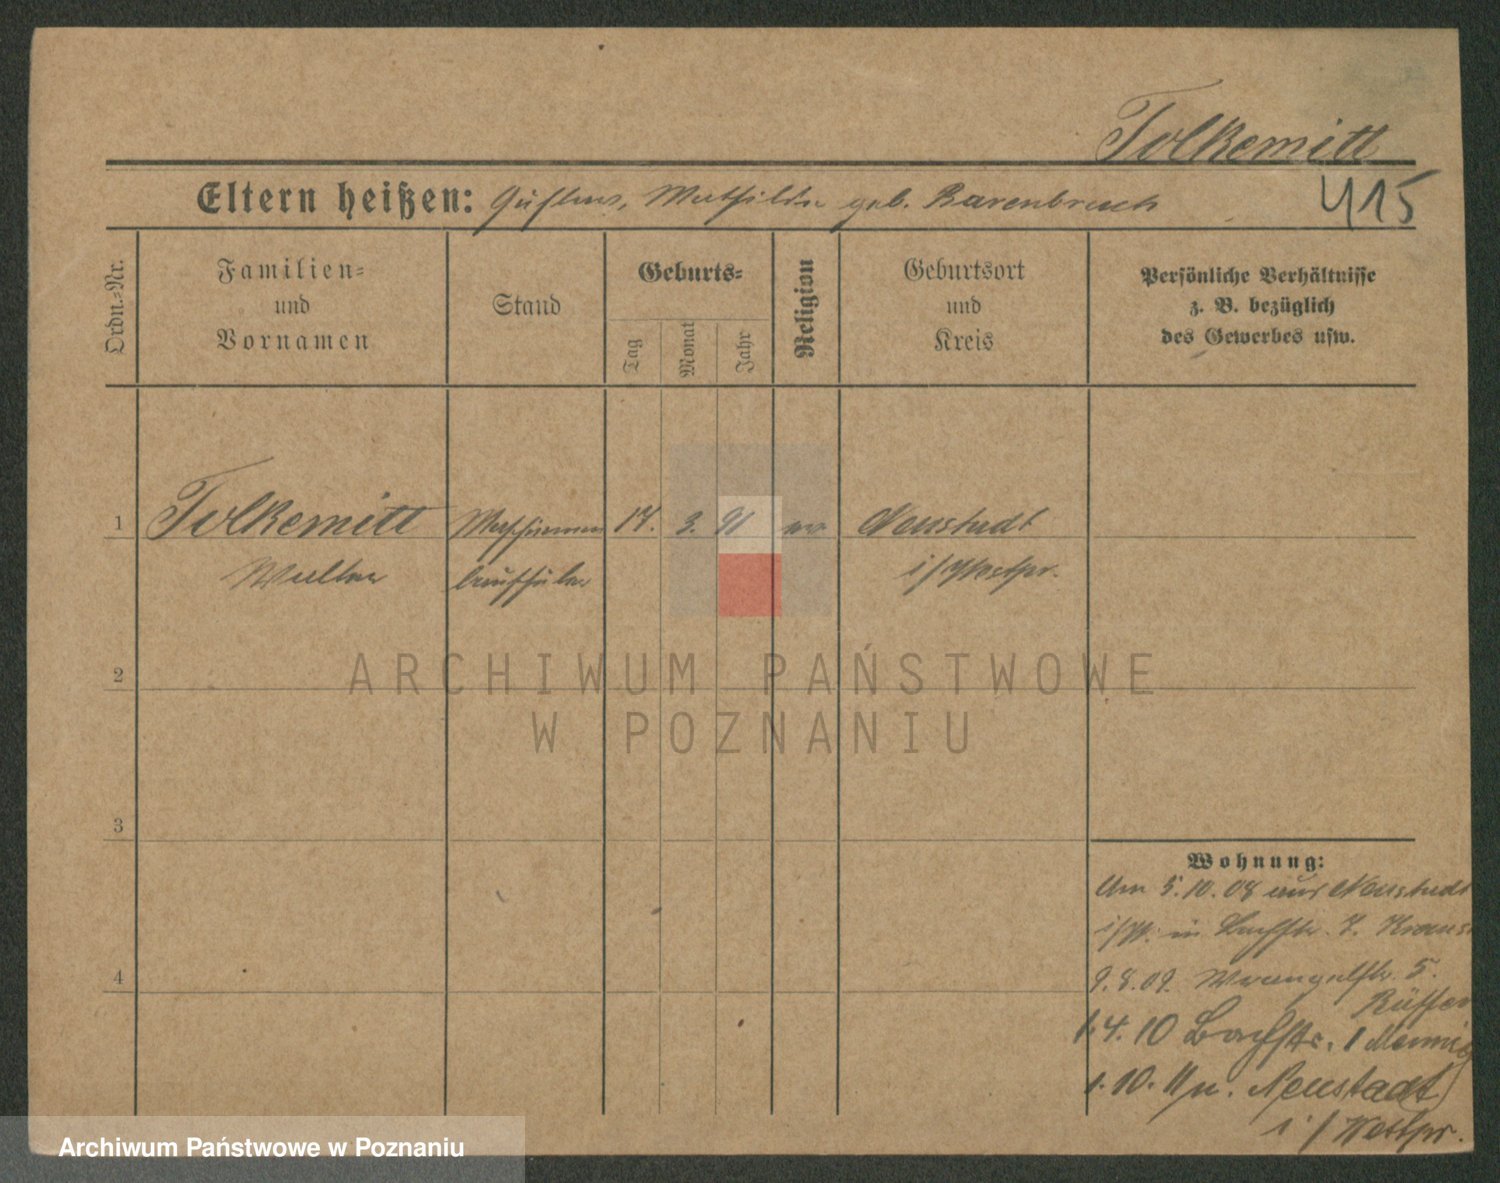 Tolkemitt
Eltern heißen: Gustav, Mathilde geb. Barenbruch
415
Ordn.-Nr.
Familien-
und
Vornamen
Stand
Geburts-
Tag
Monat
Jahr
Religion
Geburtsort
und
Kreis
Persönliche Verhältnisse
z. B. bezüglich
des Gewerbes usw.
1 Tolkemitt Maschinen 17. 3. 91 ev Neustadt
Walter bauschüler i/Westpr.
ARCHIWUM PAŃSTWOWE
2
W POZNANIU
3
Wohnung:
Am 5.10.08 aus Neustadt
i/W. in Bachstr. 7. Kraus
4
9.8.09. Wrangelstr. 5.
1.4.10 Bachstr. 1
1.10.11 n. Neustadt
i/Westpr.
Archiwum Państwowe w Poznaniu